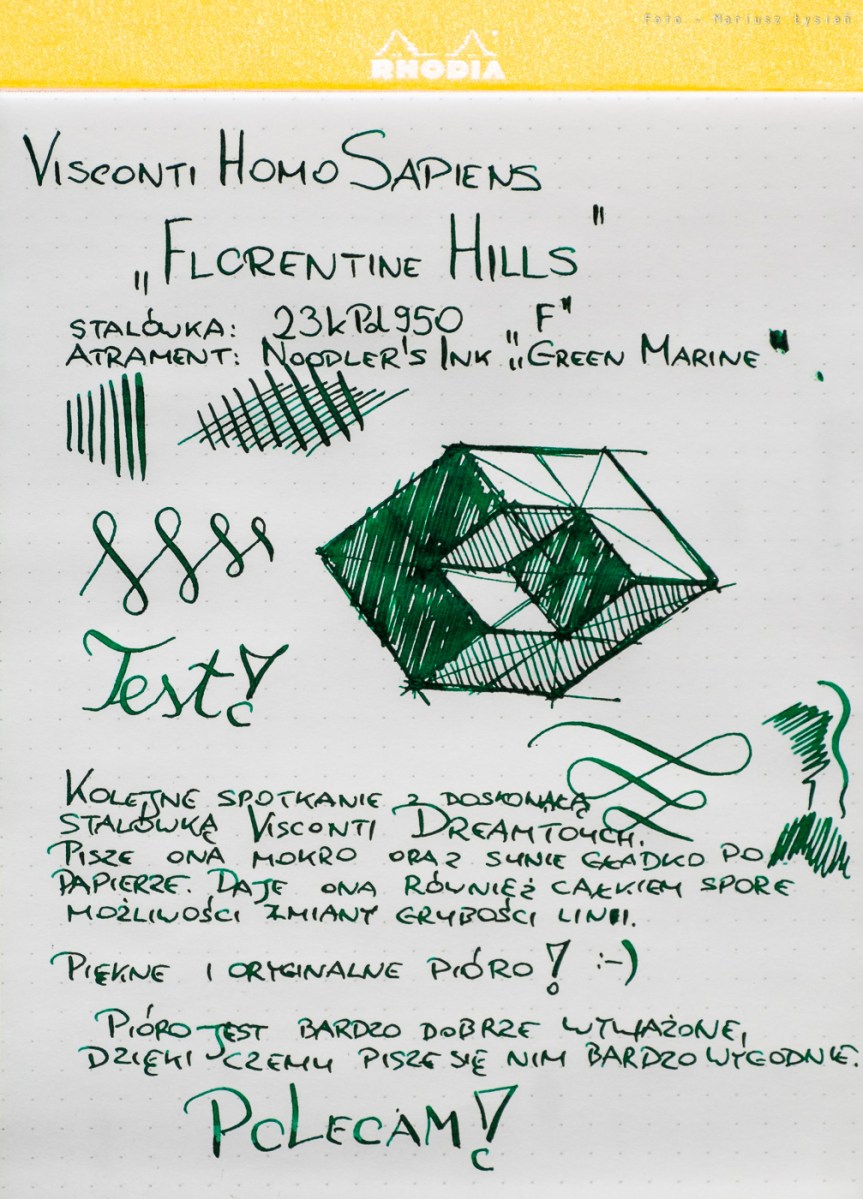 Foto - Mariusz Łysień
RHODIA
VISCONTI HOMO SAPIENS
„FLORENTINE HILLS"
STALÓWKA: 23kPd950 „F"
ATRAMENT: NOODLER'S INK „GREEN MARINE"
Test!
KOLEJNE SPOTKANIE Z DOSKONAŁĄ
STALÓWKĄ VISCONTI DREAMTOUCH.
PISZE ONA MOKRO ORAZ SUNIE GŁADKO PO
PAPIERZE. DAJE ONA RÓWNIEŻ CAŁKIEM SPORE
MOŻLIWOŚCI ZMIANY GRUBOŚCI LINII.
PIĘKNE I ORYGINALNE PIÓRO! :-)
PIÓRO JEST BARDZO DOBRZE WYWAŻONE,
DZIĘKI CZEMU PISZE SIĘ NIM BARDZO WYGODNIE.
POLECAM!